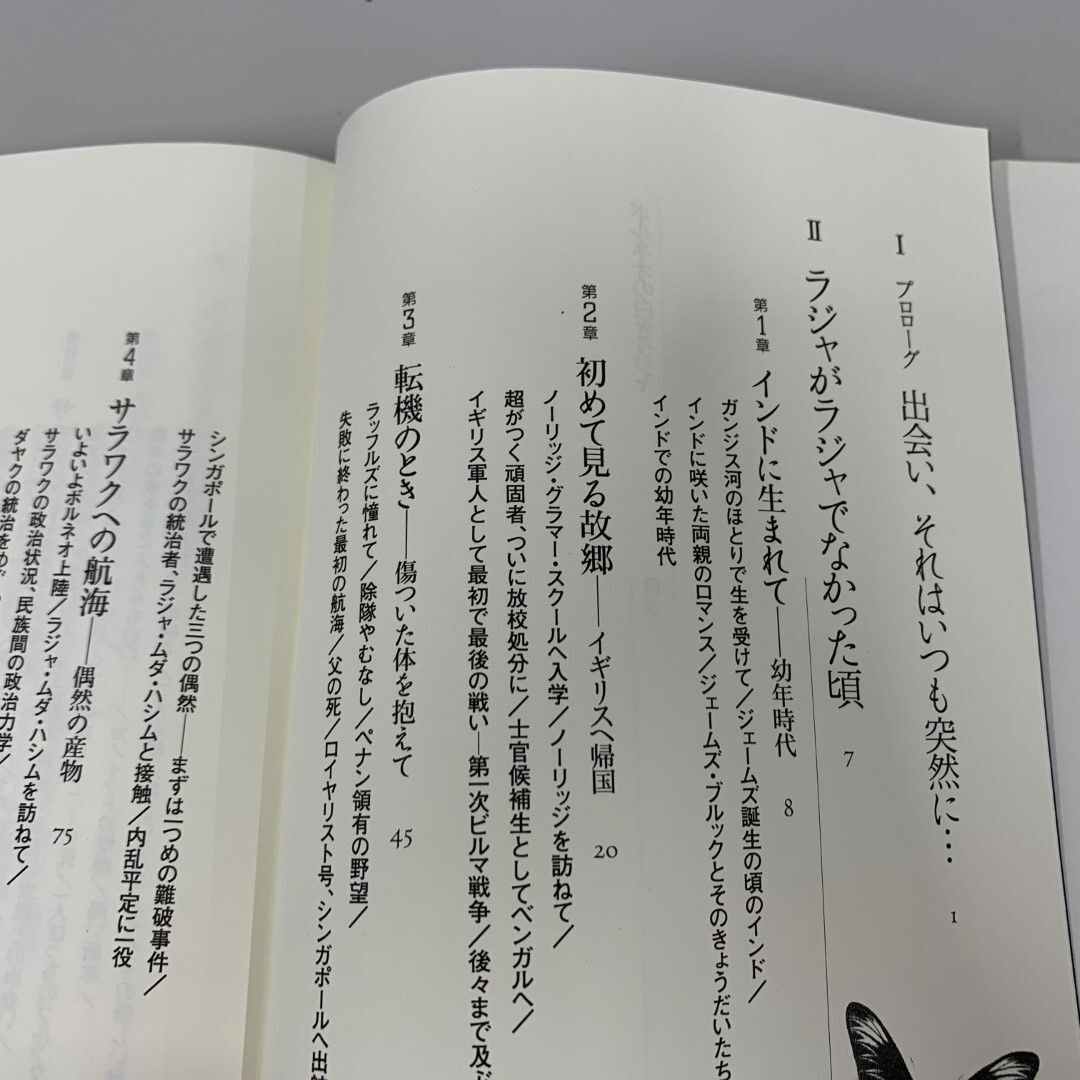 I プロローグ 出会い、それはいつも突然に… 1
II ラジャがラジャでなかった頃 7
第1章 インドに生まれて──幼年時代 8
ガンジス河のほとりで生を受けて/ジェームズ誕生の頃のインド/
インドに咲いた両親のロマンス/ジェームズ・ブルックとそのきょうだいたち
インドでの幼年時代
第2章 初めて見る故郷──イギリスへ帰国 20
ノーリッジ・グラマー・スクールへ入学/ノーリッジを訪ねて/
超がつく頑固者、ついに放校処分に/士官候補生としてベンガルへ/
イギリス軍人として最初で最後の戦い─第一次ビルマ戦争/後々まで及ぶ
第3章 転機のとき──傷ついた体を抱えて 45
ラッフルズに憧れて/除隊やむなし/ペナン領有の野望/
失敗に終わった最初の航海/父の死/ロイヤリスト号、シンガポールへ出
シンガポールで遭遇した三つの偶然──まずは一つめの難破事件/
サラワクの統治者、ラジャ・ムダ・ハシムと接触/内乱平定に一役
第4章 サラワクへの航海──偶然の産物 75
いよいよボルネオ上陸/ラジャ・ムダ・ハシムを訪ねて/
サラワクの政治状況、民族間の政治力学/
ダヤクの統治をめぐ